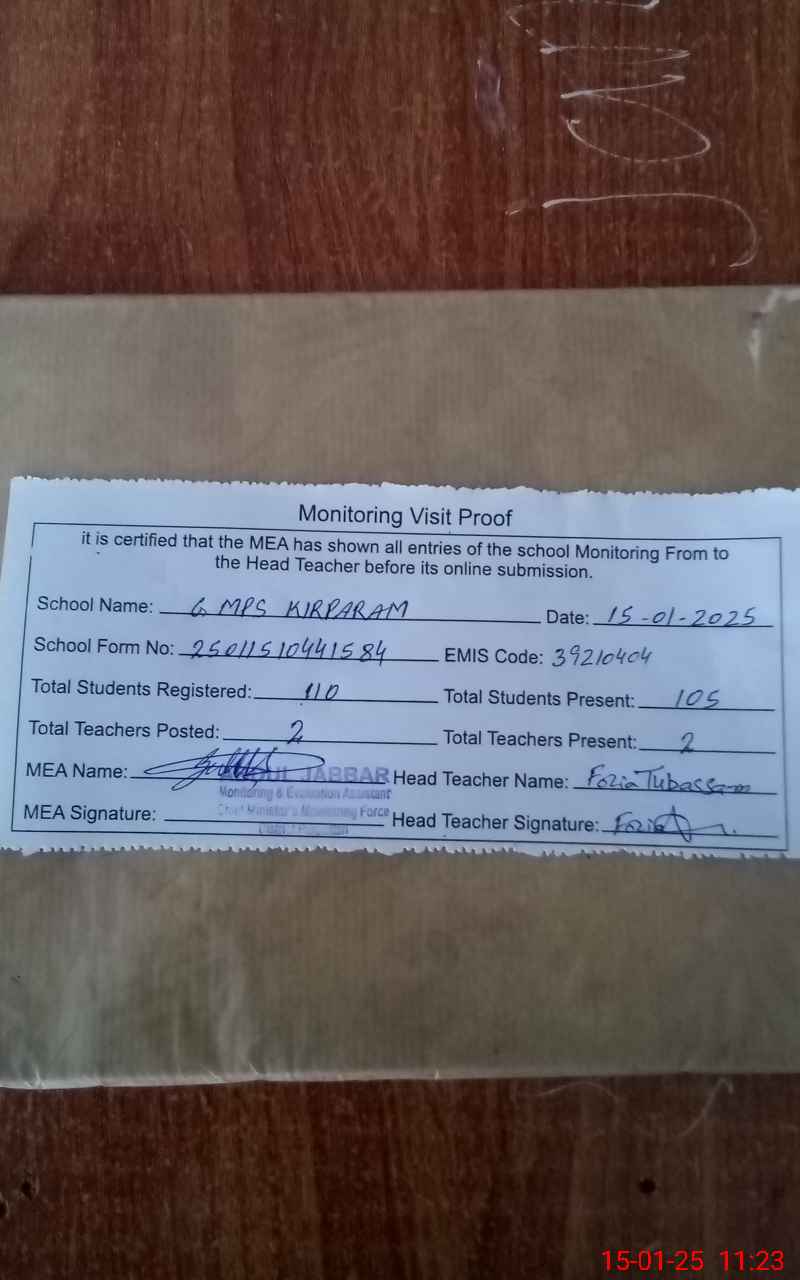 Monitoring Visit Proof
it is certified that the MEA has shown all entries of the school Monitoring From to
the Head Teacher before its online submission.
School Name: G MPS KIRPARAM Date: 15-01-2025
School Form No: 25011510441584 EMIS Code: 39210404
Total Students Registered: 110 Total Students Present: 105
Total Teachers Posted: 2 Total Teachers Present: 2
MEA Name: JABBAR Head Teacher Name: Fozia Tubassam
Monitoring & Evaluation Assistant
Chief Minister's Monitoring Force
MEA Signature: Head Teacher Signature: Fozia
15-01-25 11:23